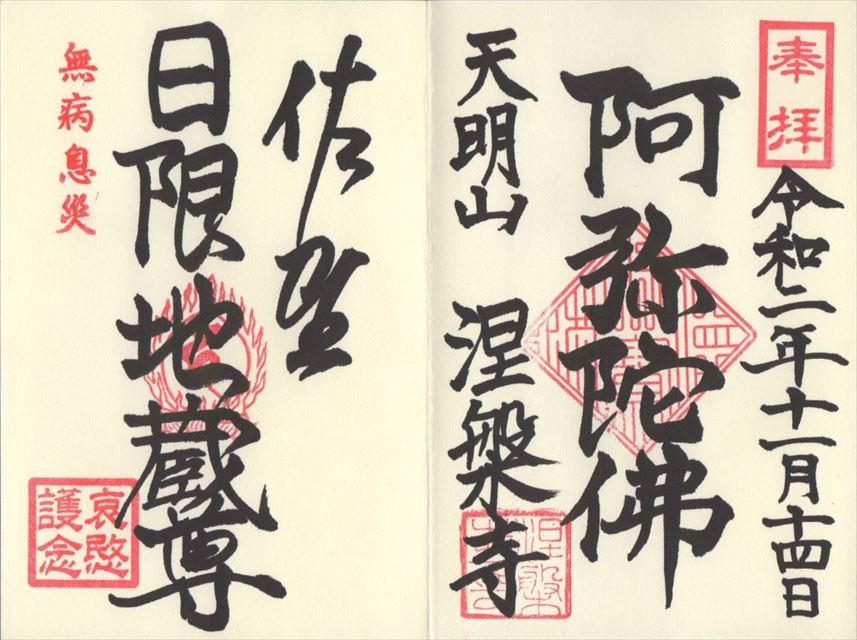 奉拝
令和二年十一月十四日
阿弥陀佛
天明山
涅槃寺
佐野
日限地蔵尊
無病息災
哀愍
護念